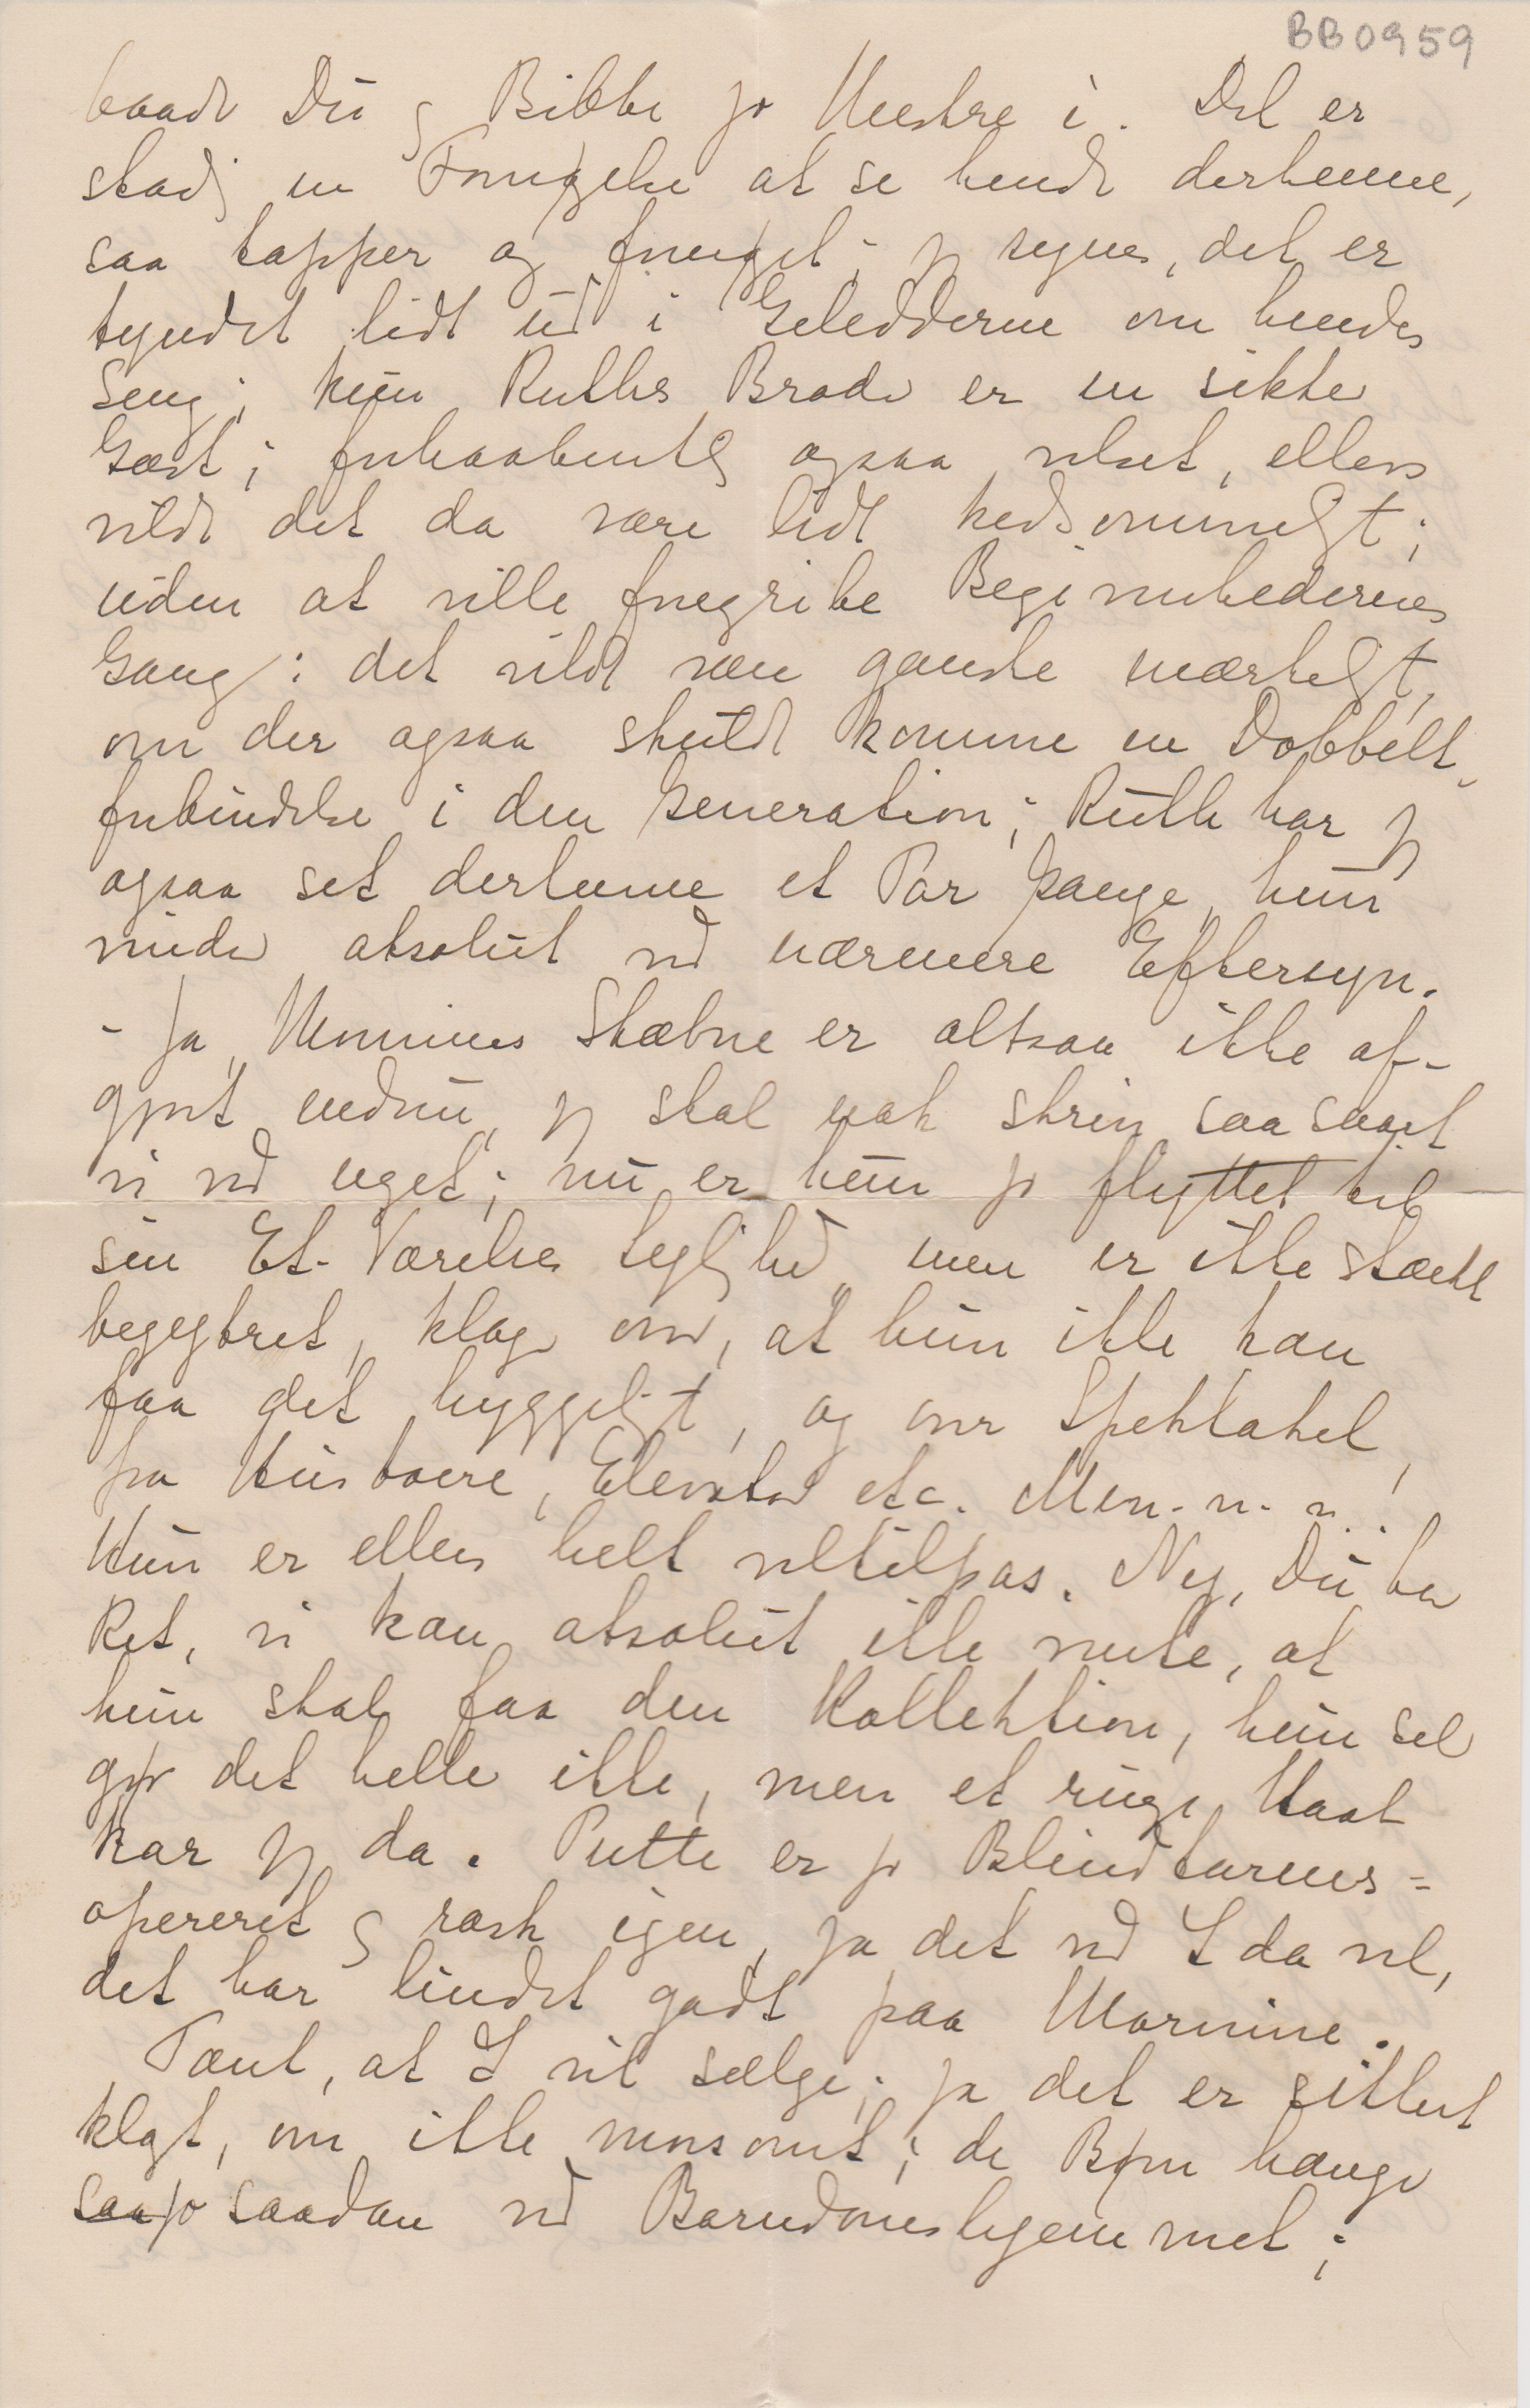 BB0959
baade Du og Bibbe jo Mestre i. Det er
stadig en Fornøjelse at se hende derhenne,
saa tapper og fornøjet; jeg synes, det er
tyndet lidt ud i Geledderne om hendes
Seng; kun Ruths Broder er en sikker
Gæst; forhaabentlig ogsaa velset, ellers
vilde det da være lidt kedsommeligt;
uden at ville foregribe Begivenhedernes
Gang: det vilde være ganske mærkeligt,
om der ogsaa skulde komme en Dobbelt-
forbindelse i den Generation; Ruth har jeg
ogsaa set derhenne et Par Gange, hun
vinder absolut ved nærmere Eftersyn.
- Ja, Mornines Skæbne er altsaa ikke af-
gjort endnu, jeg skal nok skrive saa snart
vi ved noget; nu er hun jo flyttet til
sin Et-Værelses Lejlighed, men er ikke stærkt
begejstret, klager over, at hun ikke kan
faa det hyggeligt, og over Spektakel
fra Husboere, Elevator etc. Men-n-n..!
Hun er ellers helt veltilpas. Nej, Du har
Ret, vi kan absolut ikke vente, at
hun skal faa den Kollektion, hun selv
gør det heller ikke, men et ringe Haab
har jeg da. Putte er jo Blindtarms=
opereret og rask igen, ja det ved I da vel,
det har lindet godt paa Mornine.
Tænk, at I vil sælge; ja det er sikkert
klogt, om ikke morsomt; de Børn hænger
saa jo saadan ved Barndomshjemmet;